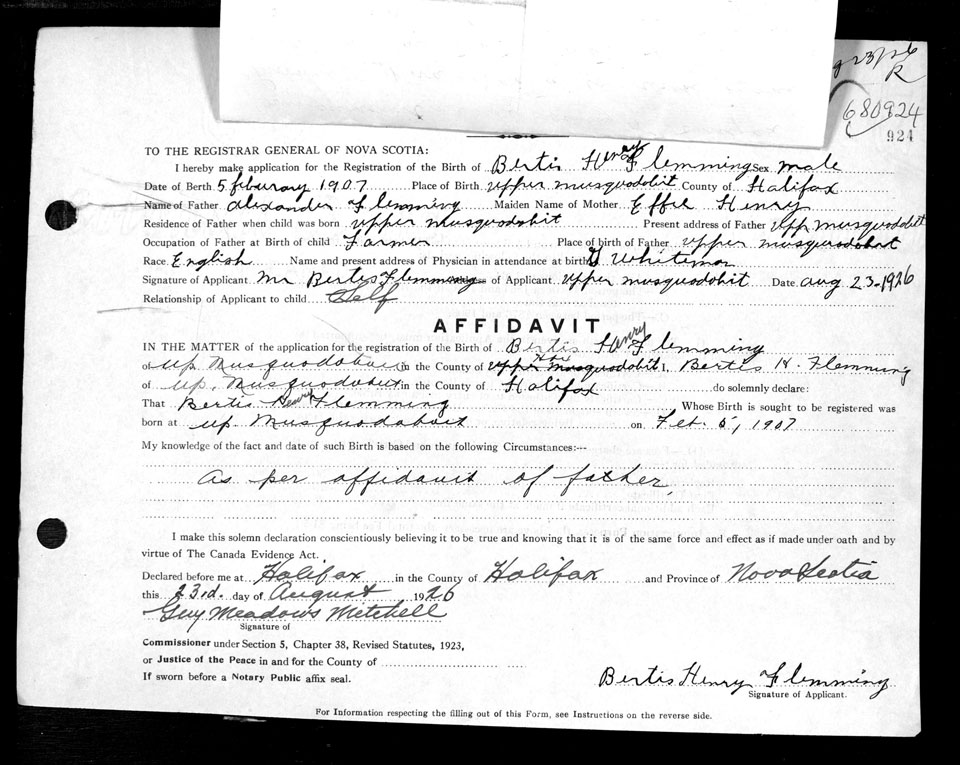 23/26
R
680924
924
TO THE REGISTRAR GENERAL OF NOVA SCOTIA:
I hereby make application for the Registration of the Birth of Bertis Henry Flemming Sex male
Date of Berth 5 february 1907 Place of Birth upper musquodobit County of Halifax
Name of Father alexander Flemming Maiden Name of Mother Effie Henry
Residence of Father when child was born upper musquodobit Present address of Father upp musquodobit
Occupation of Father at Birth of child Farmer Place of birth of Father upper musquodobit
Race English Name and present address of Physician in attendance at birth Whitemon
Signature of Applicant Mr Bertis Flemming of Applicant upper musquodobit Date aug 23-1926
Relationship of Applicant to child Self
AFFIDAVIT
IN THE MATTER of the application for the registration of the Birth of Bertis Henry Flemming
of Up. Musquodoboit in the County of upper musquodobit Hfx I, Bertis H. Flemming
of Up. Musquodoboit in the County of Halifax do solemnly declare:
That Bertis Henry Flemming Whose Birth is sought to be registered was
born at Up Musquodoboit on Feb. 5, 1907
My knowledge of the fact and date of such Birth is based on the following Circumstances:--
As per affidavit of father,
I make this solemn declaration conscientiously believing it to be true and knowing that it is of the same force and effect as if made under oath and by
virtue of The Canada Evidence Act.
Declared before me at Halifax in the County of Halifax and Province of Nova Scotia
this 23rd. day of August 1926
Guy Meadows Mitchell
Signature of
Commissioner under Section 5, Chapter 38, Revised Statutes, 1923,
or Justice of the Peace in and for the County of
If sworn before a Notary Public affix seal.
Bertis Henry Flemming
Signature of Applicant.
For Information respecting the filling out of this Form, see Instructions on the reverse side.